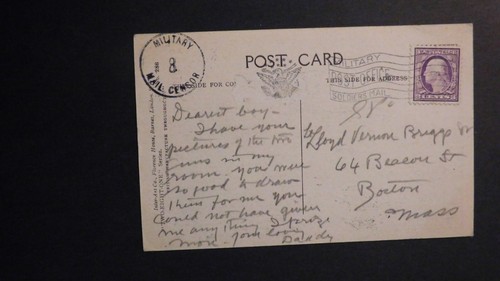 MILITARY
8
MAIL CENSOR
POST CARD
SIDE FOR CO
THIS SIDE FOR ADDRESS
MILITARY
POST OFFICE
SOLDIERS MAIL
Dearest boy -
I have your
pictures of the two
in my
room. you were
so good to draw
them for me you
could not have given
me any thing I prize
more - your loving
Daddy
Lloyd Vernon Briggs
64 Beacon St
Boston
Mass